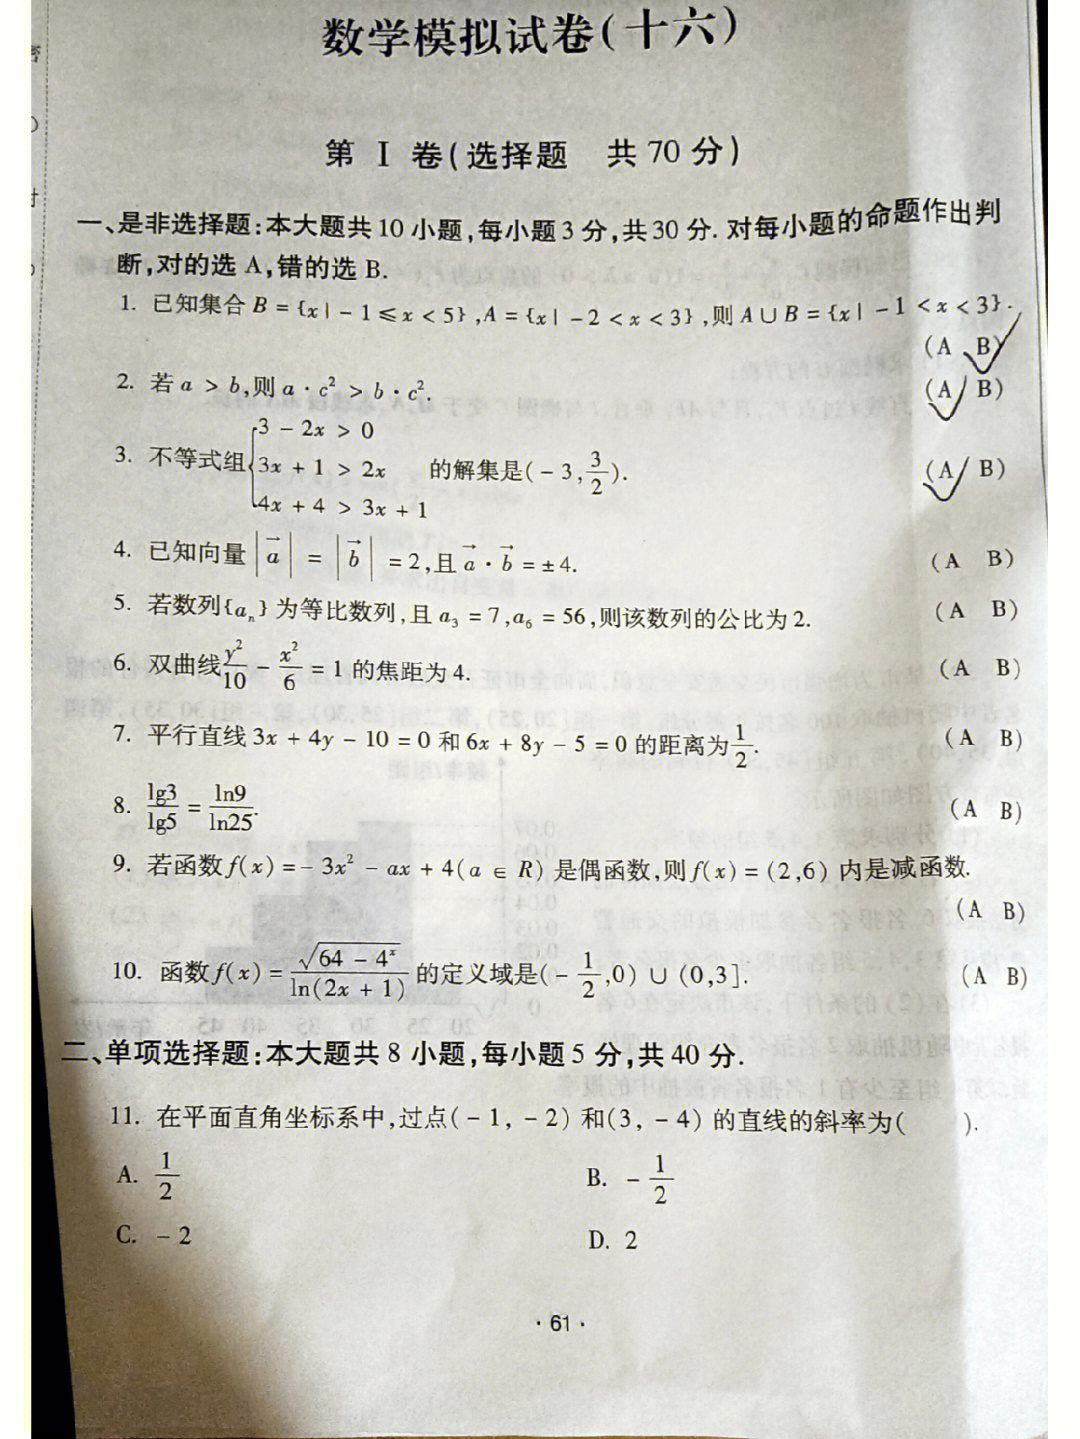 数学模拟试卷(十六)
第 Ⅰ 卷(选择题 共 70 分)
一、是非选择题:本大题共 10 小题,每小题 3 分,共 30 分. 对每小题的命题作出判
断,对的选 A,错的选 B.
1. 已知集合 B = {x | - 1 ⩽ x < 5} ,A = {x | - 2 < x < 3} ,则 A ∪ B = {x | - 1 < x < 3}.
(A B)
2. 若 a > b,则 a · c² > b · c².
(A B)
3. 不等式组{3 - 2x > 0
3x + 1 > 2x 的解集是( - 3, 3/2 ).
4x + 4 > 3x + 1
(A B)
4. 已知向量 |a⃗| = |b⃗| = 2,且 a⃗ · b⃗ = ± 4.
(A B)
5. 若数列{aₙ} 为等比数列,且 a₃ = 7,a₆ = 56,则该数列的公比为 2.
(A B)
6. 双曲线 y²/10 - x²/6 = 1 的焦距为 4.
(A B)
7. 平行直线 3x + 4y - 10 = 0 和 6x + 8y - 5 = 0 的距离为 1/2.
(A B)
8. lg3/lg5 = ln9/ln25.
(A B)
9. 若函数 f(x) = - 3x² - ax + 4(a ∈ R) 是偶函数,则 f(x) = (2,6) 内是减函数.
(A B)
10. 函数 f(x) = √(64 - 4ˣ)/ln(2x + 1) 的定义域是( - 1/2 ,0) ∪ (0,3].
(A B)
二、单项选择题:本大题共 8 小题,每小题 5 分,共 40 分.
11. 在平面直角坐标系中,过点( - 1, - 2) 和(3, - 4) 的直线的斜率为( ).
A. 1/2 B. - 1/2
C. - 2 D. 2
· 61 ·